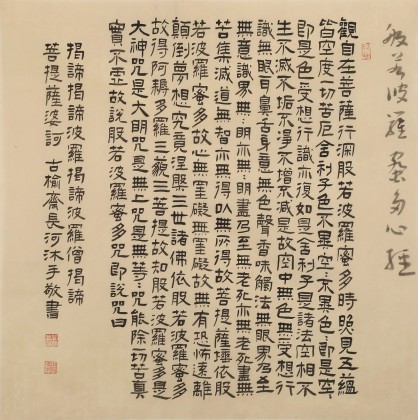 般若波羅蜜多心經
觀自在菩薩行深般若波羅蜜多時照見五蘊
皆空度一切苦厄舍利子色不異空空不異色色即是空空
即是色受想行識亦復如是舍利子是諸法空相不
生不滅不垢不淨不增不減是故空中無色無受想行
識無眼耳鼻舌身意無色聲香味觸法無眼界乃至
無意識界無無明亦無無明盡乃至無老死亦無老死盡無
苦集滅道無智亦無得以無所得故菩提薩埵依般
若波羅蜜多故心無罣礙無罣礙故無有恐怖遠離
顛倒夢想究竟涅槃三世諸佛依般若波羅蜜多
故得阿耨多羅三藐三菩提故知般若波羅蜜多是
大神咒是大明咒是無上咒是無等等咒能除一切苦真
實不虛故說般若波羅蜜多咒即說咒曰
揭諦揭諦波羅揭諦波羅僧揭諦
菩提薩婆訶 古榆齋長河沐手敬書